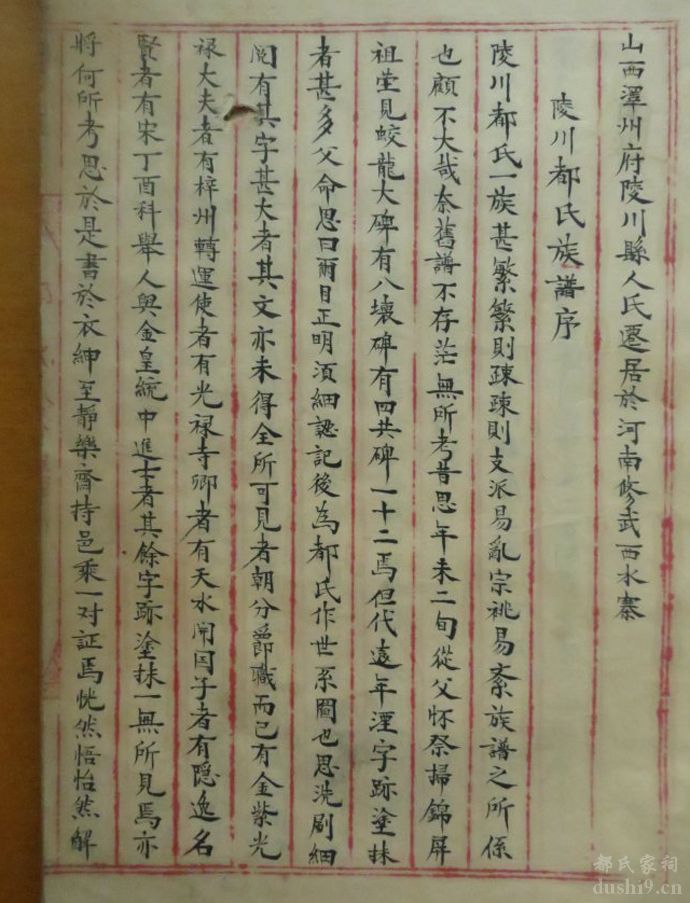 山西澤州府陵川縣人氏遷居於河南修武西水寨
陵川都氏族譜序
陵川都氏一族甚繁繁則疎疎則支派易亂宗祧易紊族譜之所係
也顧不大哉奈舊譜不存茫無所考昔思年未二旬從父怀祭掃錦屏
祖塋見蛟龍大碑有八壞碑有四共碑一十二焉但代遠年湮字跡塗抹
者甚多父命思曰爾目正明須細認記後為都氏作世系圖也思洗刷細
閱有其字甚大者其文亦未得全所可見者朝分爵職而已有金紫光
禄大夫者有梓州轉運使者有光禄寺卿者有天水開国子者有隐逸名
賢者有宋丁酉科舉人與金皇統中進士者其餘字跡塗抹一無所見焉亦
將何所考思於是書於衣紳至靜樂齋持邑乘一对証焉恍然悟怡然解
都氏家祠
dushi9.cn